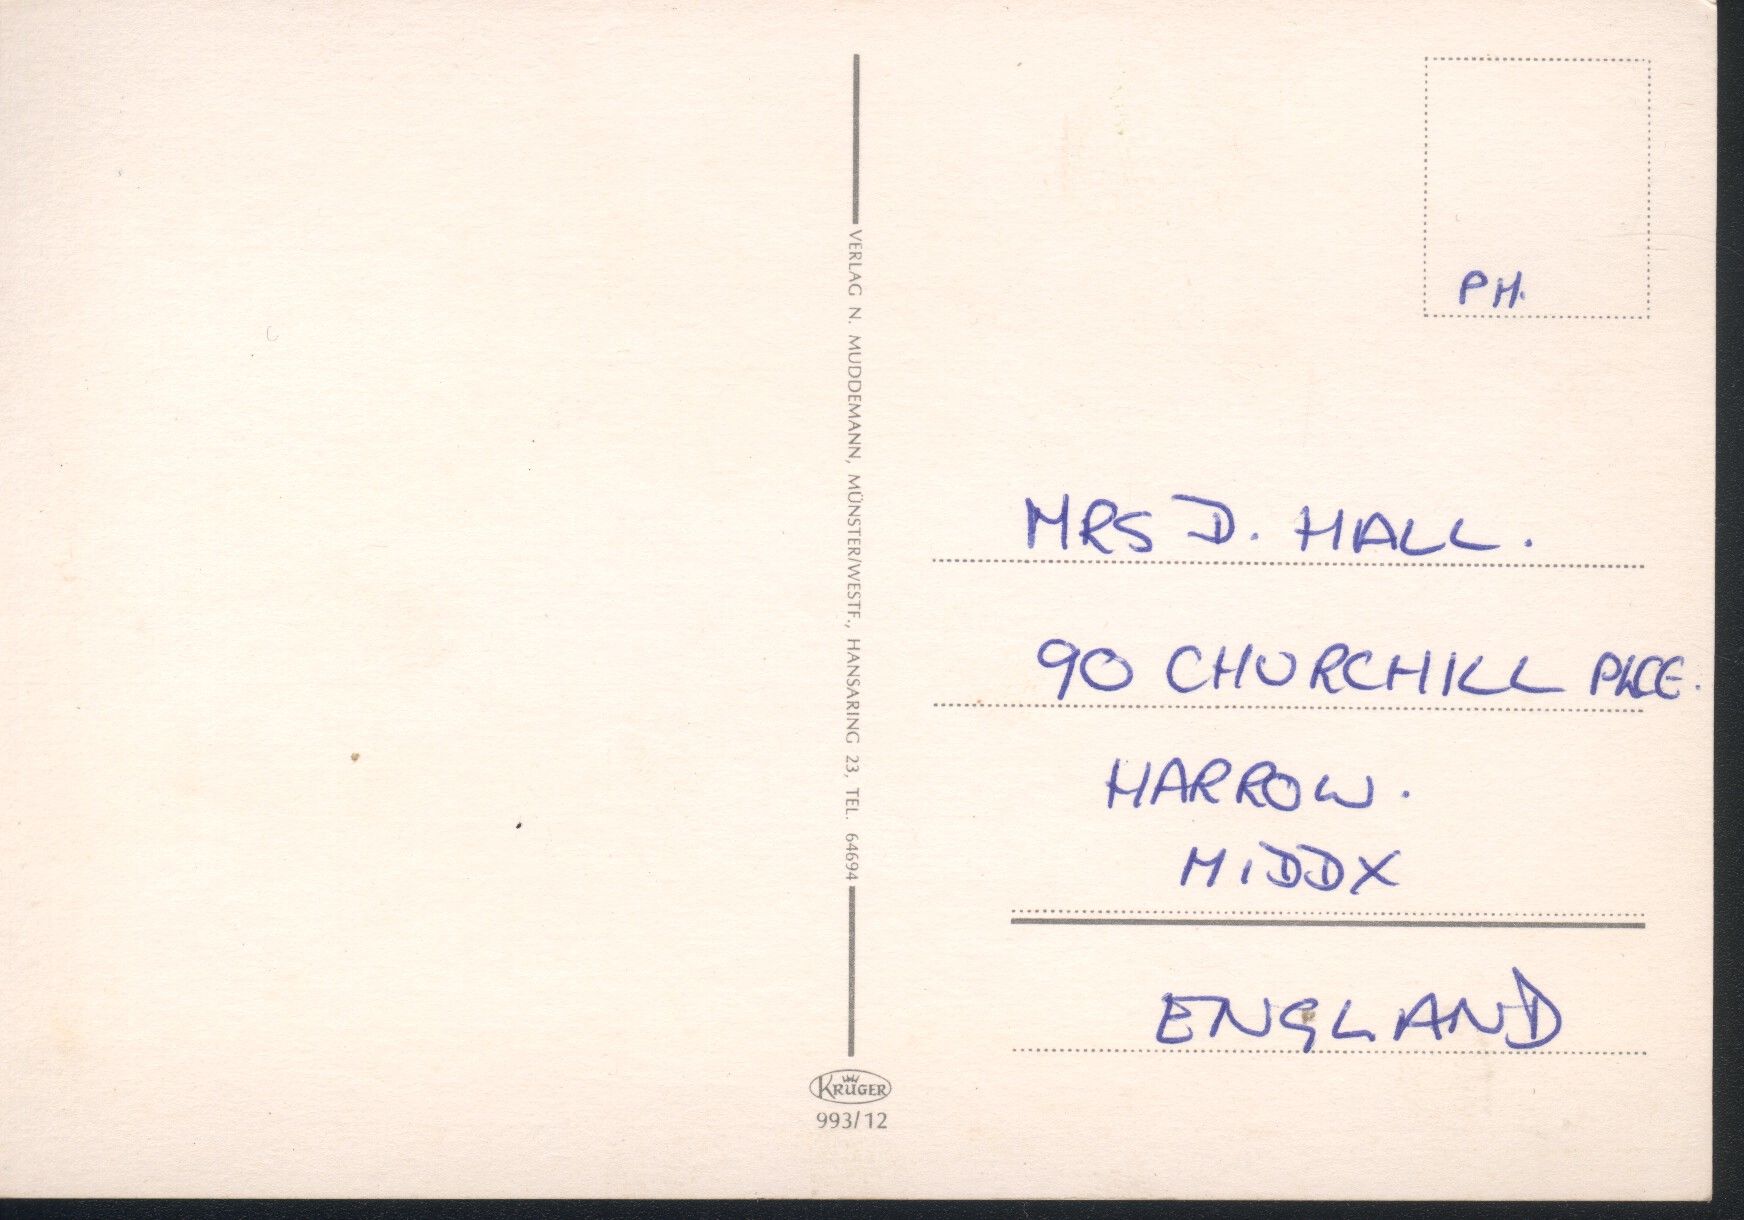 PH.
VERLAG N. MUDDEMANN, MÜNSTER/WESTF., HANSARING 23, TEL. 64694
MRS D. HALL.
90 CHURCHILL PLCE.
HARROW.
MIDDX
ENGLAND
KRÜGER
993/12